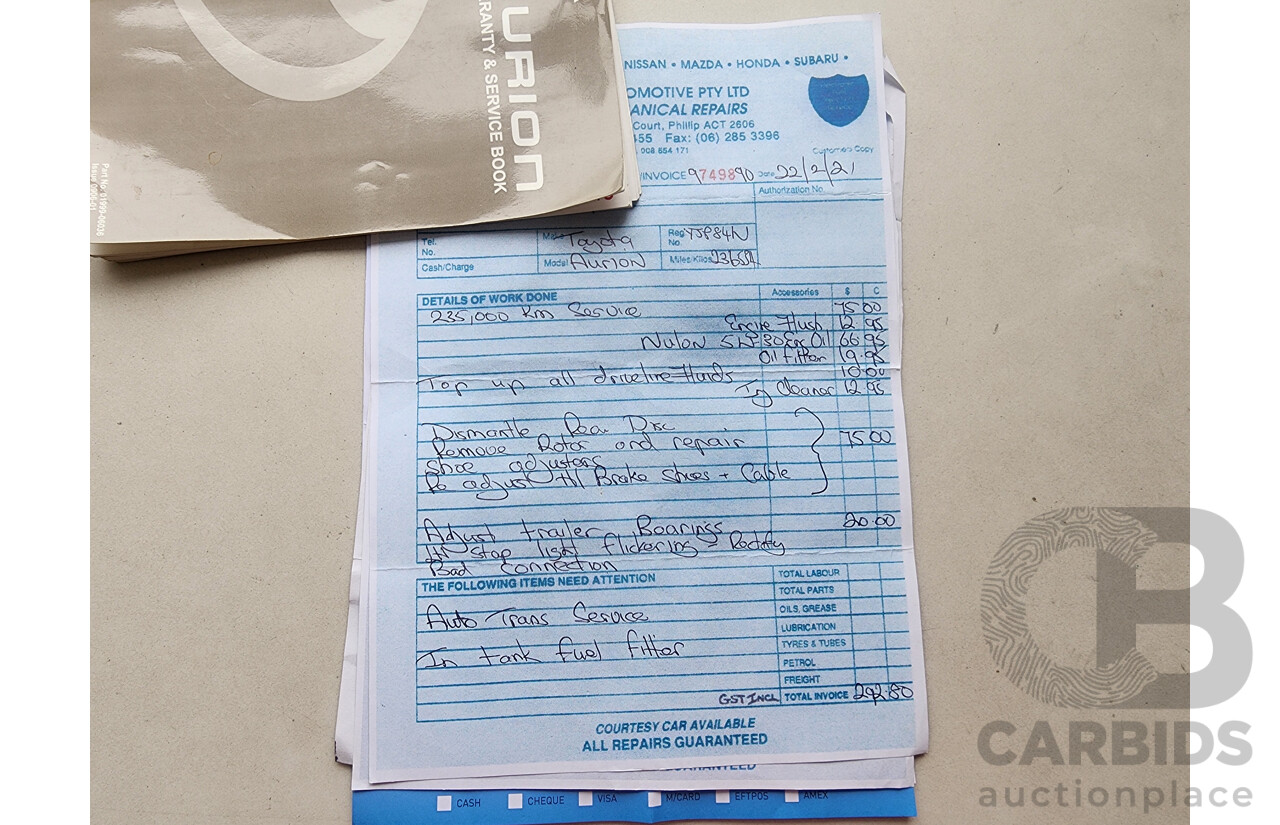 URION
RRANTY & SERVICE BOOK
Part No. 01999-06036
NISSAN • MAZDA • HONDA • SUBARU •
OMOTIVE PTY LTD
ANICAL REPAIRS
Court, Phillip ACT 2606
55 Fax: (06) 285 3396
008 654 171
Customers Copy
/INVOICE 974989 Date 22/2/21
Authorization No.
Tel. No.
Make Toyota
Reg No. YJP84N
Cash/Charge
Model Aurion
Miles/Kilos
DETAILS OF WORK DONE Accessories $ C
235,000 Km Service 75 00
Engine Flush 12 95
Nulon 5W-30 Eng Oil 66 95
Oil filter 19.95
Top up all driveline fluids 10.00
Inj Cleaner 12 95
Dismantle Rear Disc
Remove Rotor and repair 75 00
Shoe adjusters
Re adjust H Brake shoes + Cable
Adjust trailer Bearings 20.00
stop light flickering = Rectify
Bad connection
THE FOLLOWING ITEMS NEED ATTENTION
TOTAL LABOUR
TOTAL PARTS
Auto Trans Service
OILS, GREASE
LUBRICATION
In tank fuel filter
TYRES & TUBES
PETROL
FREIGHT
GST INCL TOTAL INVOICE 292.80
COURTESY CAR AVAILABLE
ALL REPAIRS GUARANTEED
GUARANTEED
CASH CHEQUE VISA M/CARD EFTPOS AMEX
CB
CARBIDS
auctionplace